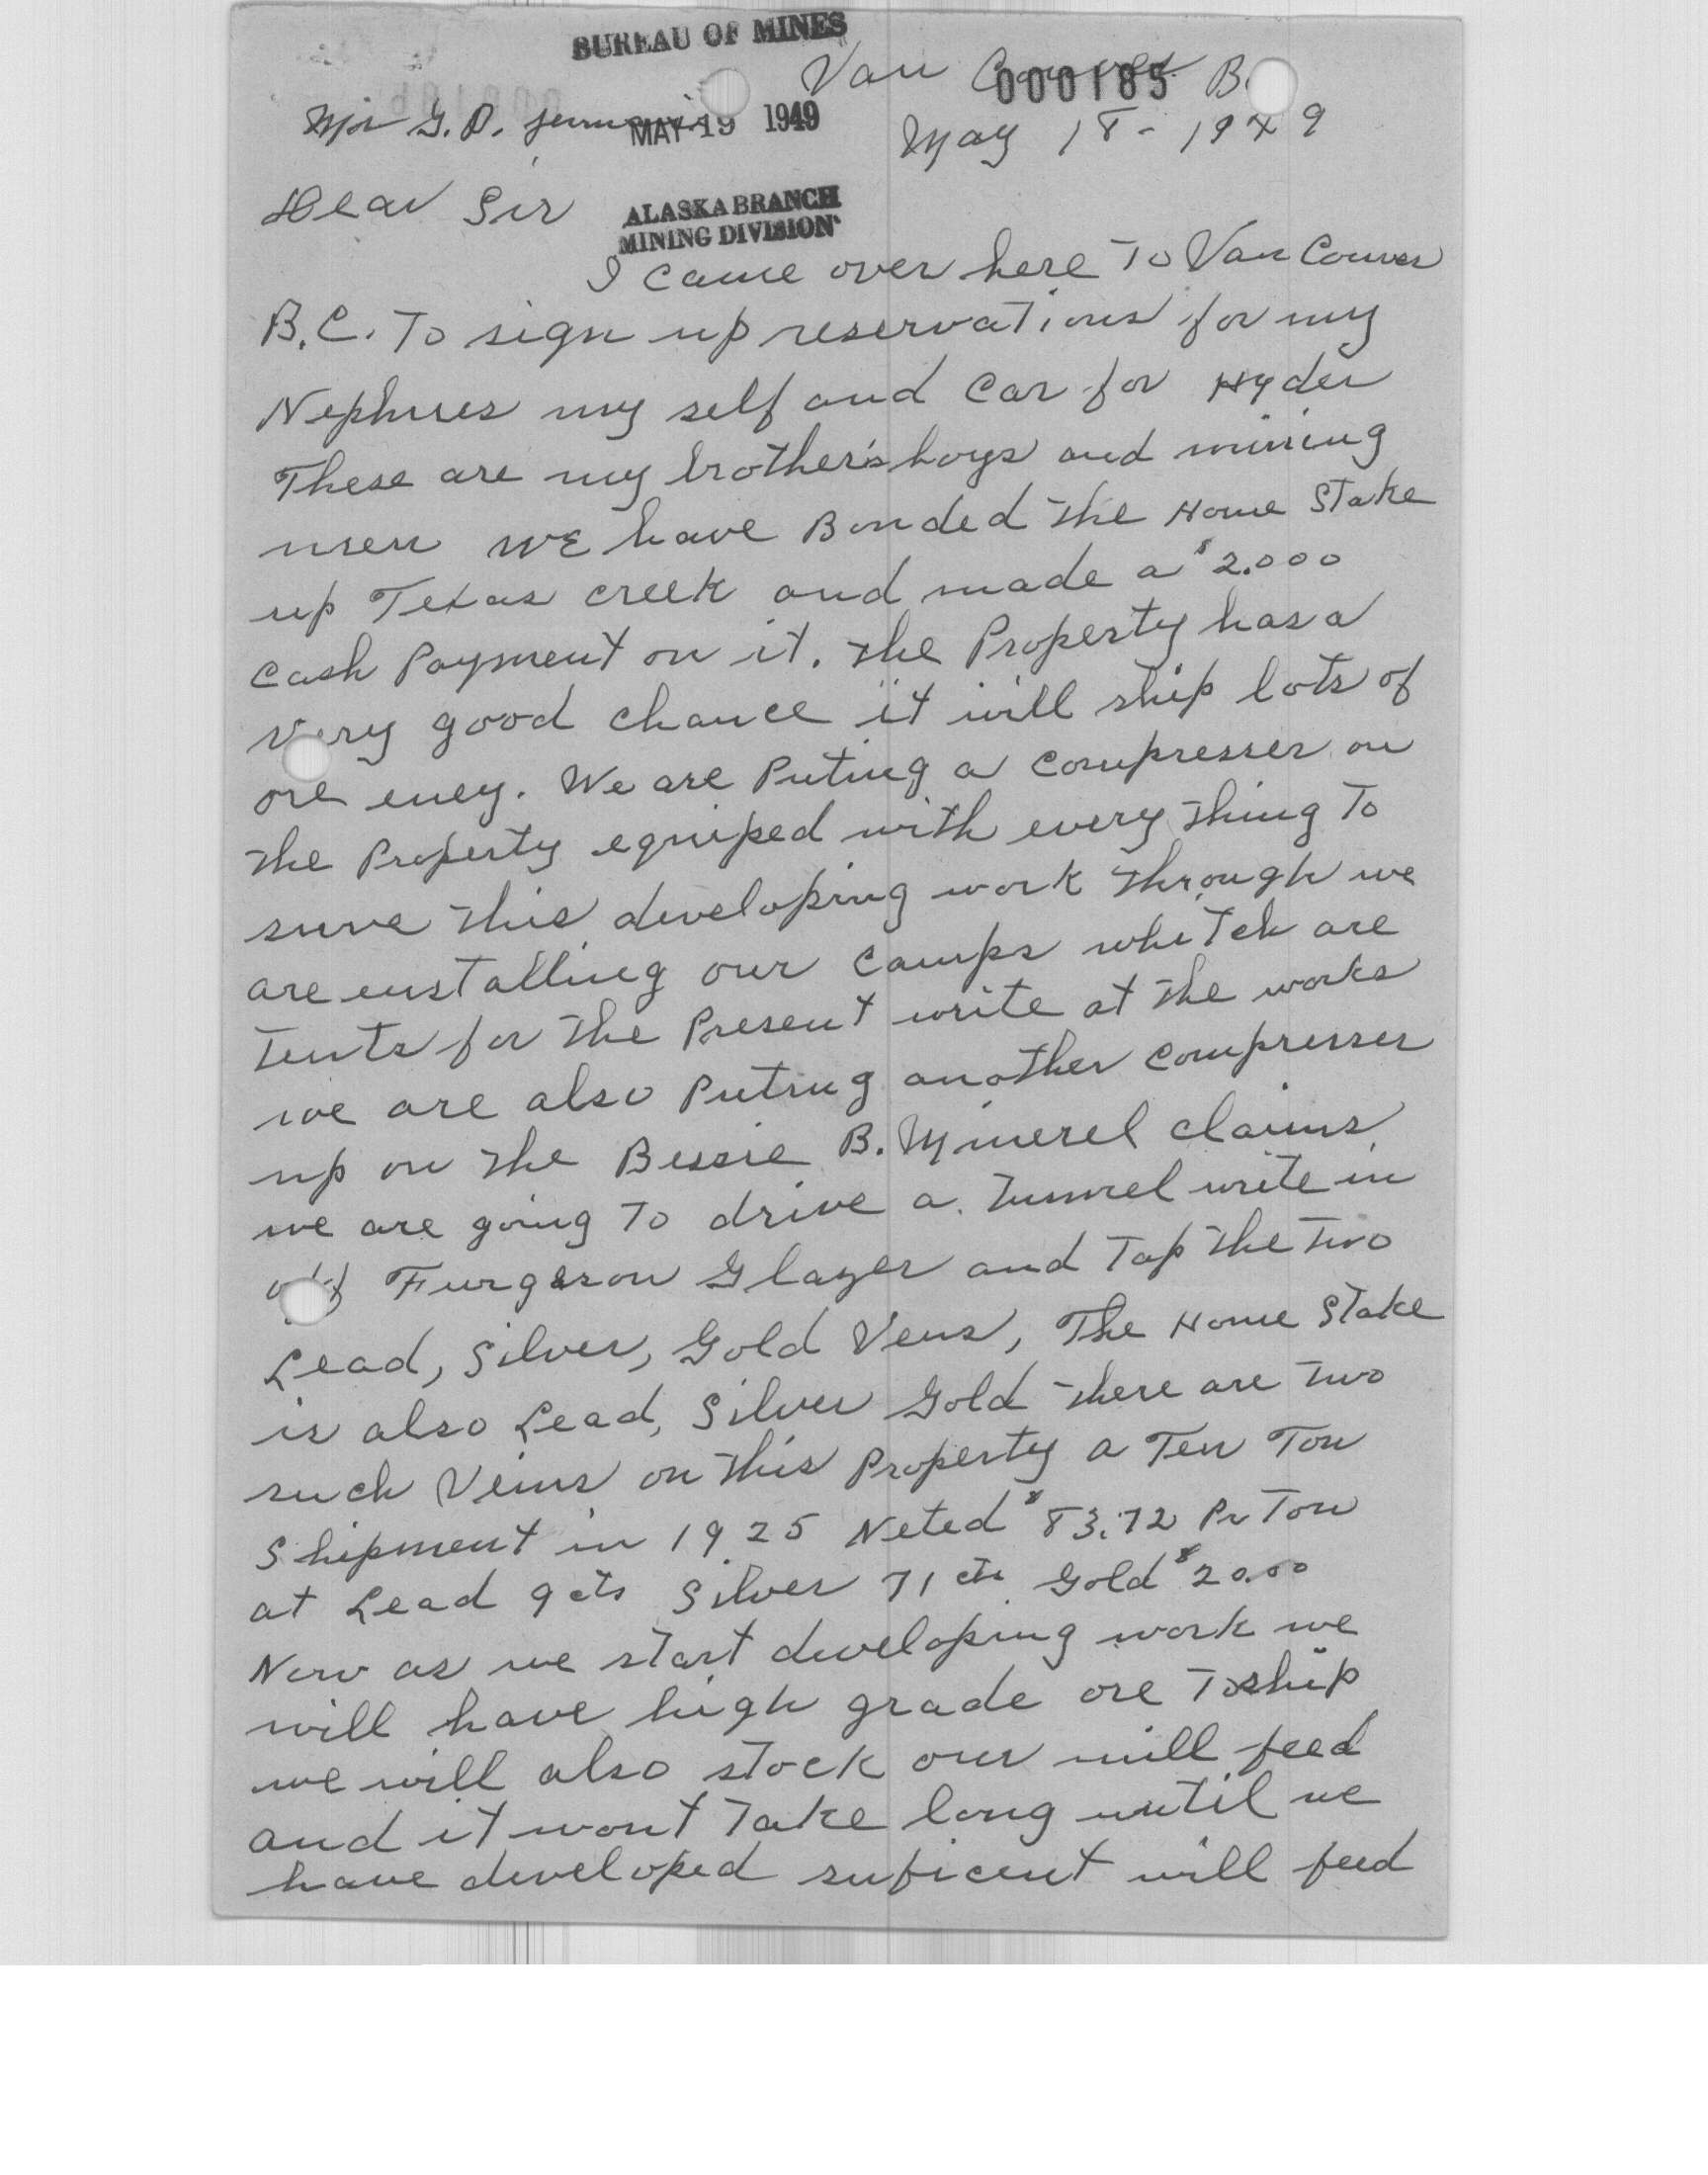 BUREAU OF MINES
Van 000185 B.
Mr G. D. MAY 19 1949
May 18 - 1949
Dear Sir
ALASKA BRANCH
MINING DIVISION
I came over here To Van Couver
B.C. To sign up reservations for my
Nephues my self and Car for Hyder
These are my brother's boys and mining
men WE have Bonded The Home Stake
up Texas creek and made a $2.000
cash Payment on it. The Property has a
very good chance it will ship lots of
ore eney. We are Puting a compresser on
The Property equiped with every Thing To
surve This developing work Through we
are enstalling our camps whitch are
Tents for The Present write at The works
we are also Puting another compresser
up on The Bessie B. Minerel claims
we are going To drive a Tunnel write in
off Furgerson Glazer and Tap The Two
Lead, Silver, Gold Vens, The Home Stake
is also Lead, Silver Gold There are Two
such Veins on This Property a Ten Ton
Shipment in 1925 Neted $83.72 Pr Ton
at Lead 9 cts Silver 71 cts Gold $20.00
Now as we start developing work we
will have high grade ore To ship
we will also stock our mill feed
and it wont Take long until we
have developed suficent mill feed